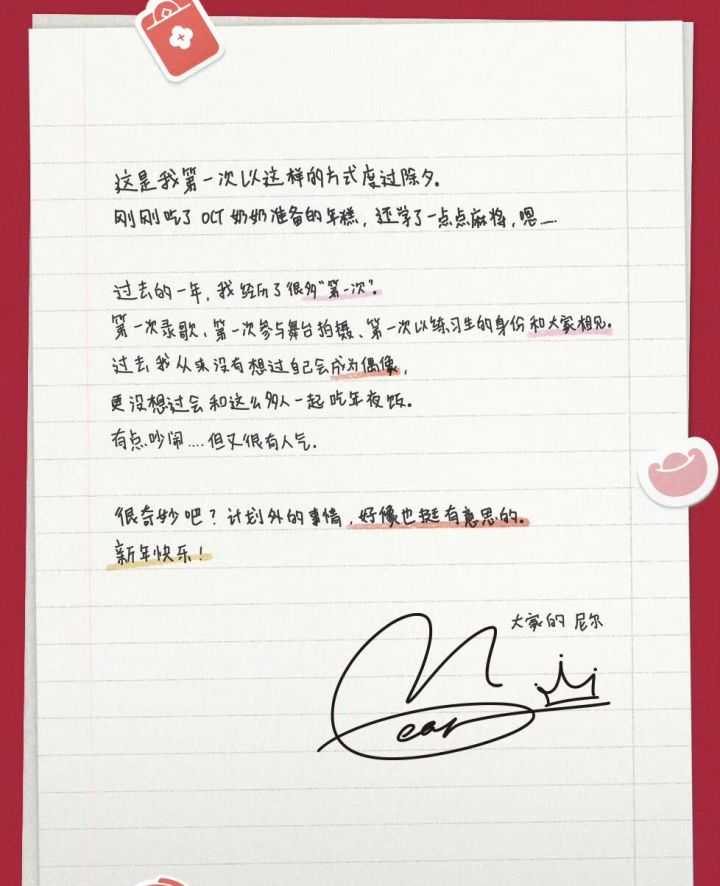 这是我第一次以这样的方式度过除夕。
刚刚吃了OCT奶奶准备的年糕，还学了一点点麻将，嗯……
过去的一年，我经历了很多“第一次”。
第一次录歌、第一次参与舞台拍摄、第一次以练习生的身份和大家相见。
过去我从来没有想过自己会成为偶像，
更没想过会和这么多人一起吃年夜饭。
有点吵闹....但又很有人气.
很奇妙吧？计划外的事情，好像也挺有意思的。
新年快乐！
大家的 尼尔